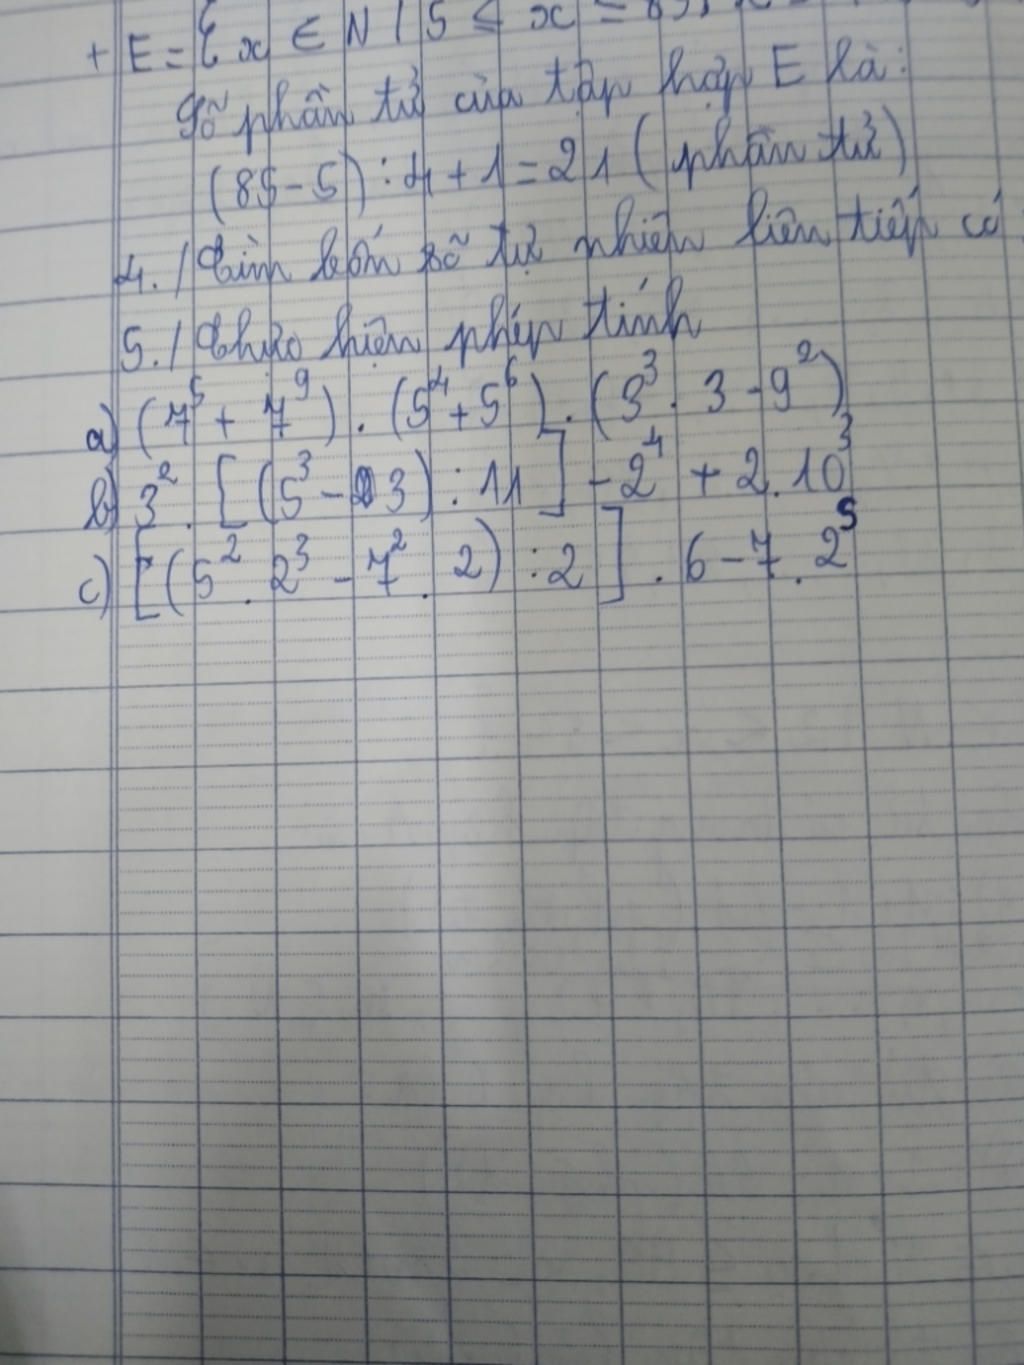 + E = { x ∈ N / 5 ≤ x ≤ 85,
Số phần tử của tập hợp E là:
(85 - 5) : 4 + 1 = 21 ( phần tử)
4./ Tìm bốn số tự nhiên liên tiếp có
5./ Thực hiện phép tính
a) (7⁵ + 7⁹) . (5⁴ + 5⁶) . (3³ . 3 - 9²)
b) 3² . [ (5³ - 3) : 11 ] - 2⁴ + 2 . 10³
c) [ (5² . 2³ - 7² . 2) : 2 ] . 6 - 7 . 2⁵